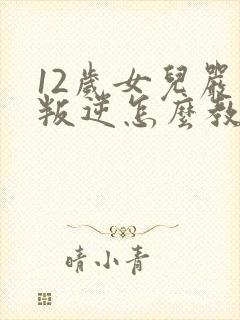 12歲女兒嚴
叛逆怎麼教
晴小青